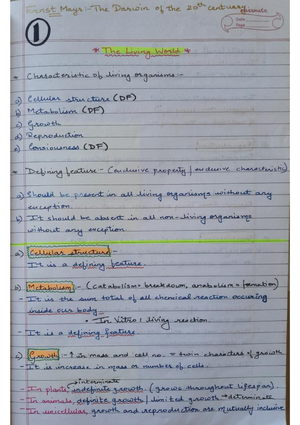 Ernst Mayr :- The Darwin of the 20th century
classmate
Date
Page
1
* The Living World *
* Characteristic of living organisms :-
a) Cellular structure (DF)
b) Metabolism (DF)
c) Growth
d) Reproduction
e) Consiousness (DF)
* Defining feature - (exclusive property / exclusive characteristic)
a) Should be present in all living organisms without any
exception.
b) It should be absent in all non-living organisms
without any exception.
a) Cellular structure :-
It is a defining feature.
b) Metabolism :- (Catabolism = breakdown, anabolism = formation)
- It is the sum total of all chemical reaction occuring
inside our body.
• In Vitro : living reaction.
- It is a defining feature.
c) Growth :- ↑ in mass and cell no. = twin characters of growth.
- It is increase in mass or number of cells.
indeterminate
- In plants, indefinite growth. (grows throughout lifespan)
- In animals, definite growth / limited growth → determinate
- In unicellular, growth and reproduction are mutually inclusive